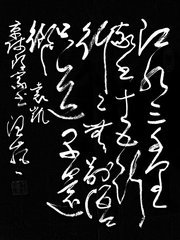 江水三千里
家书十五行
行々无别语
只道早还
乡 袁凯
京师得家书